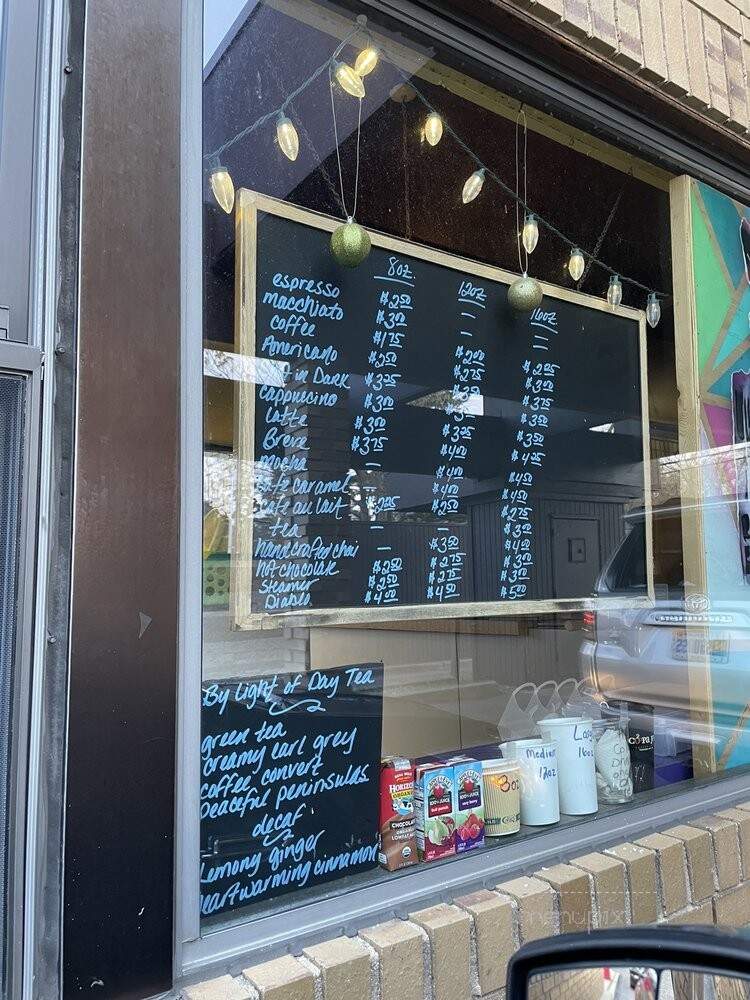 8oz. 12oz 16oz
espresso $2.50 - -
macchiato $3.00 - -
coffee $1.75 $2.00 $2.25
Americano $2.50 $2.75 $3.00
in Dark $3.25 $3.75
cappucino $3.00 $3.50
Latte $3.00 $3.25 $3.50
Breve $3.75 $4.00 $4.25
mocha - $4.00 $4.50
cafe caramel - $4.00 $4.50
cafe au lait $2.25 $2.50 $2.75
tea - - $3.00
handcrafted chai - $3.50 $4.00
hot chocolate $2.50 $2.75 $3.00
steamer $2.50 $2.75 $3.00
Diablo $4.00 $4.50 $5.00
By Light of Day Tea
green tea
creamy earl grey
coffee convert
peaceful peninsulas
decaf
Lemony ginger
heartwarming cinnamon
HORIZON
ORGANIC
CHOCOLATE
100% JUICE
100% JUICE
8oz
Medium
12oz
16oz